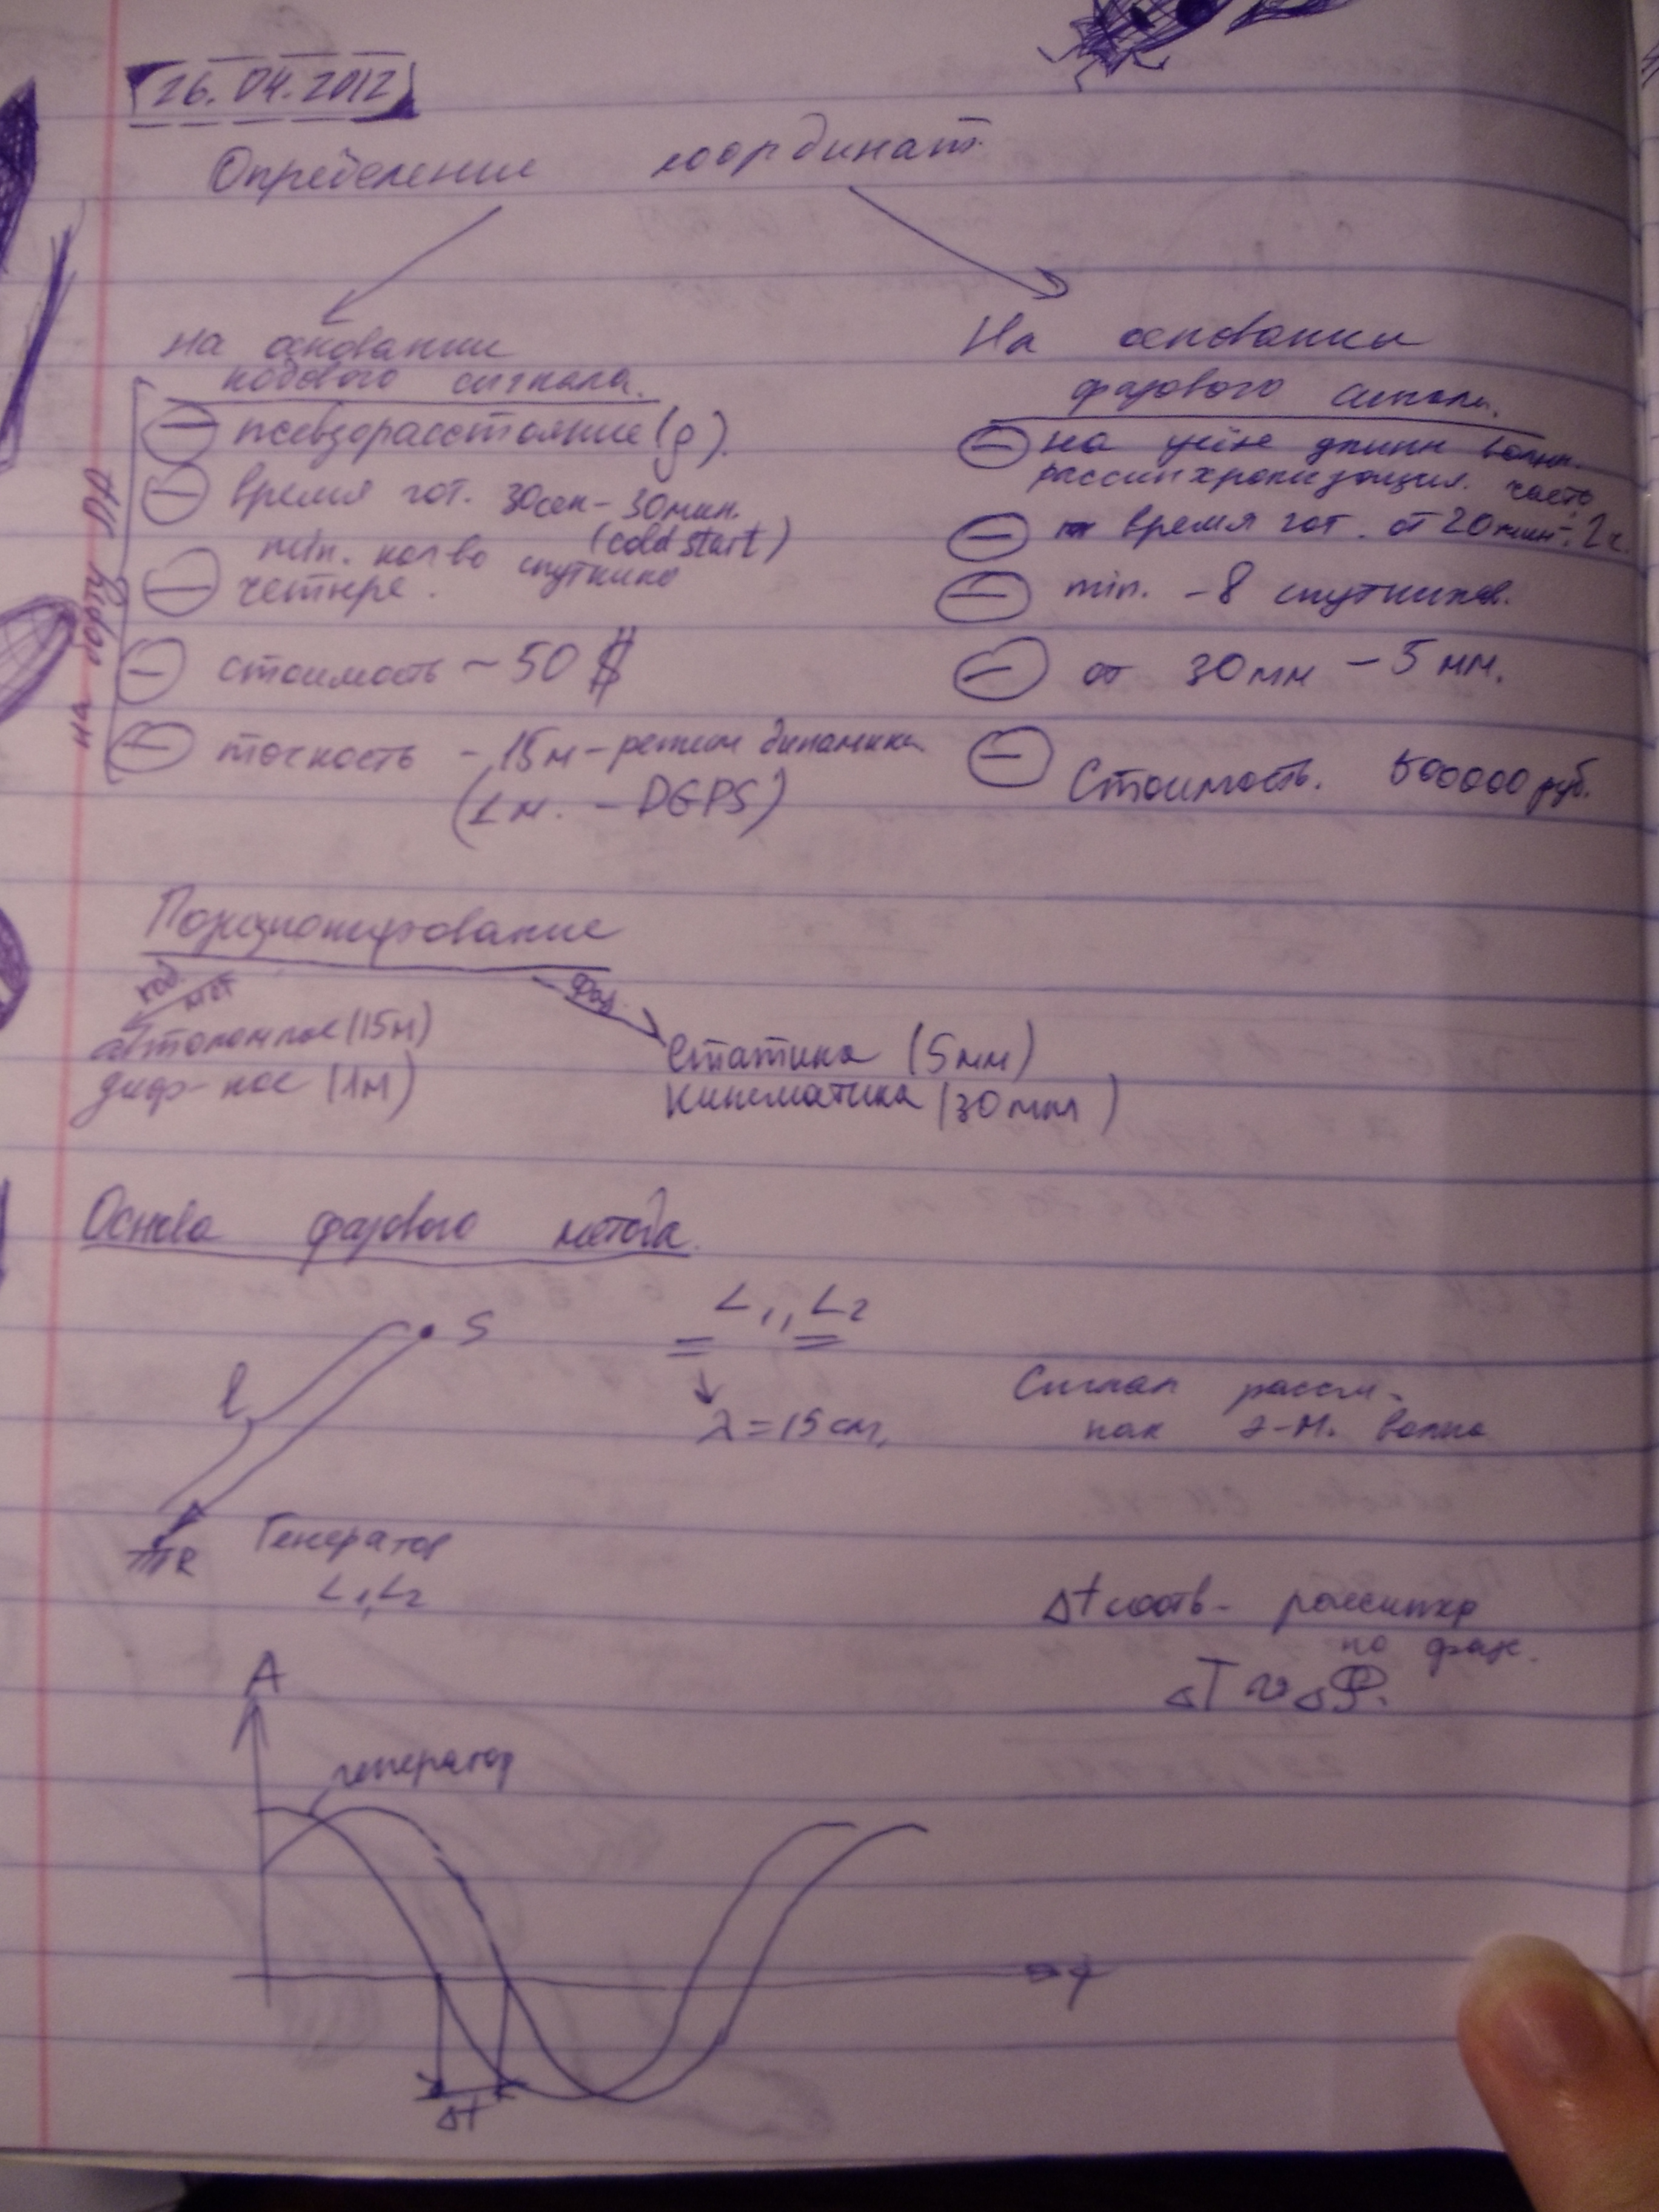 26.04.2012
Определение координат.
на основании
кодового сигнала.
псевдорасстояние (ρ).
время гот. 30сек - 30мин.
(cold start)
min. кол-во спутников
четыре.
стоимость ~ 50 $
точность - 15м - режим динамики
(1 м. - DGPS)
на борту ЛА
На основании
фазового сигнала.
на длин волн.
рассинхронизация. часть
время гот. от 20мин. 2ч.
min. - 8 спутников.
от 30мм - 5мм.
Стоимость. 500000 руб.
Позиционирование
код. мет
фаз.
автономное (15м)
диф-ное (1м)
Статика (5мм)
Кинематика (30мм)
Основа фазового метода.
S
L1, L2
l
λ = 15 см.
Сигнал рассм-
как э-м. волна
R
Генератор
L1, L2
Δt соотв- рассинхр
по фазе.
ΔT ~ ΔФ.
A
генератор
Δt